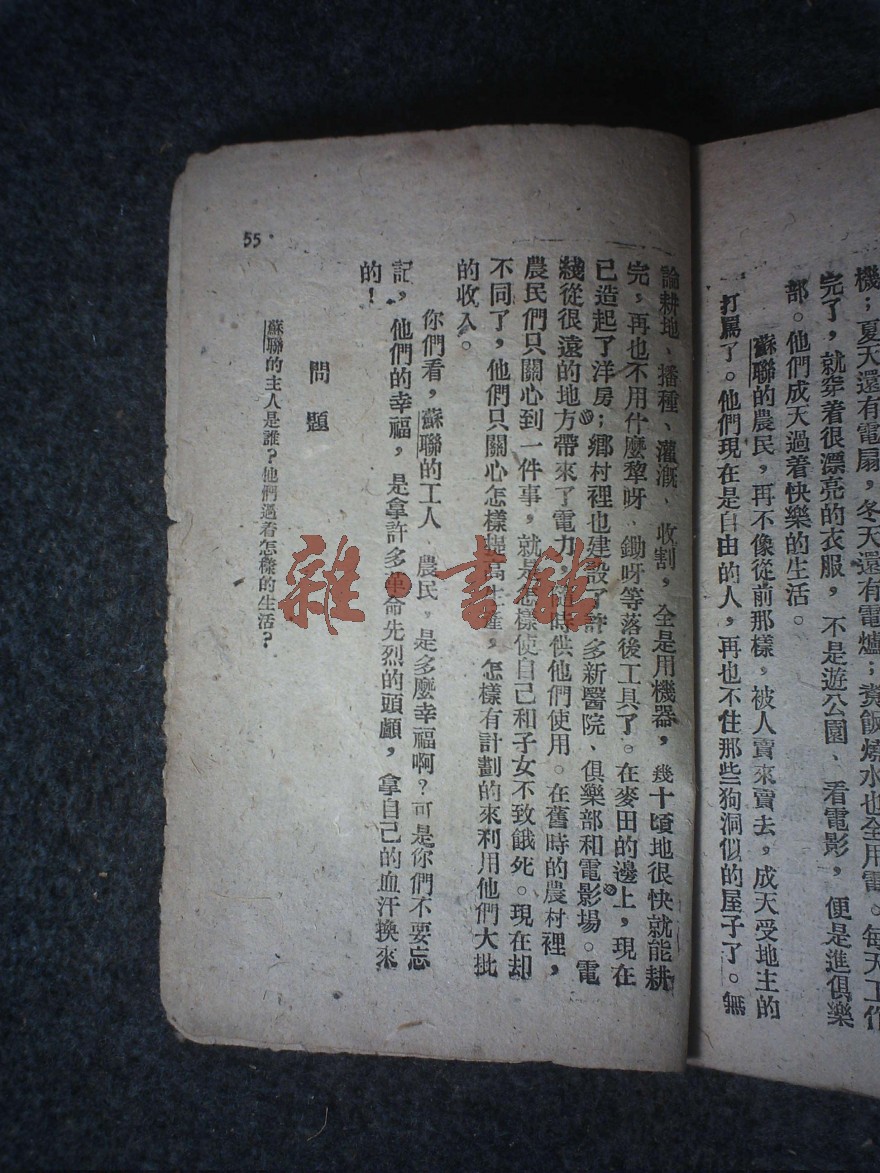 機；夏天還有電扇，冬天還有電爐；煮飯燒水也全用電。每天工作
完了，就穿着很漂亮的衣服，不是遊公園、看電影，便是進俱樂
部。他們成天過着快樂的生活。
蘇聯的農民，再不像從前那樣，被人賣來賣去，成天受地主的
打罵了。他們現在是自由的人，再也不住那些狗洞似的屋子了。無
論耕地、播種、灌漑、收割，全是用機器，幾十頃地很快就能耕
完，再也不用什麼犂呀、鋤呀等落後工具了。在麥田的邊上，現在
已造起了洋房；鄉村裡也建設了許多新醫院、俱樂部和電影場。電
綫從很遠的地方帶來了電力，隨時供他們使用。在舊時的農村裡，
農民們只關心到一件事，就是怎樣使自己和子女不致餓死。現在却
不同了，他們只關心怎樣提高生產，怎樣有計劃的來利用他們大批
的收入。
你們看，蘇聯的工人、農民，是多麼幸福啊？可是你們不要忘
記，他們的幸福，是拿許多革命先烈的頭顱，拿自己的血汗換來
的！
問題
蘇聯的主人是誰？他們過着怎樣的生活？
55
雜·書館